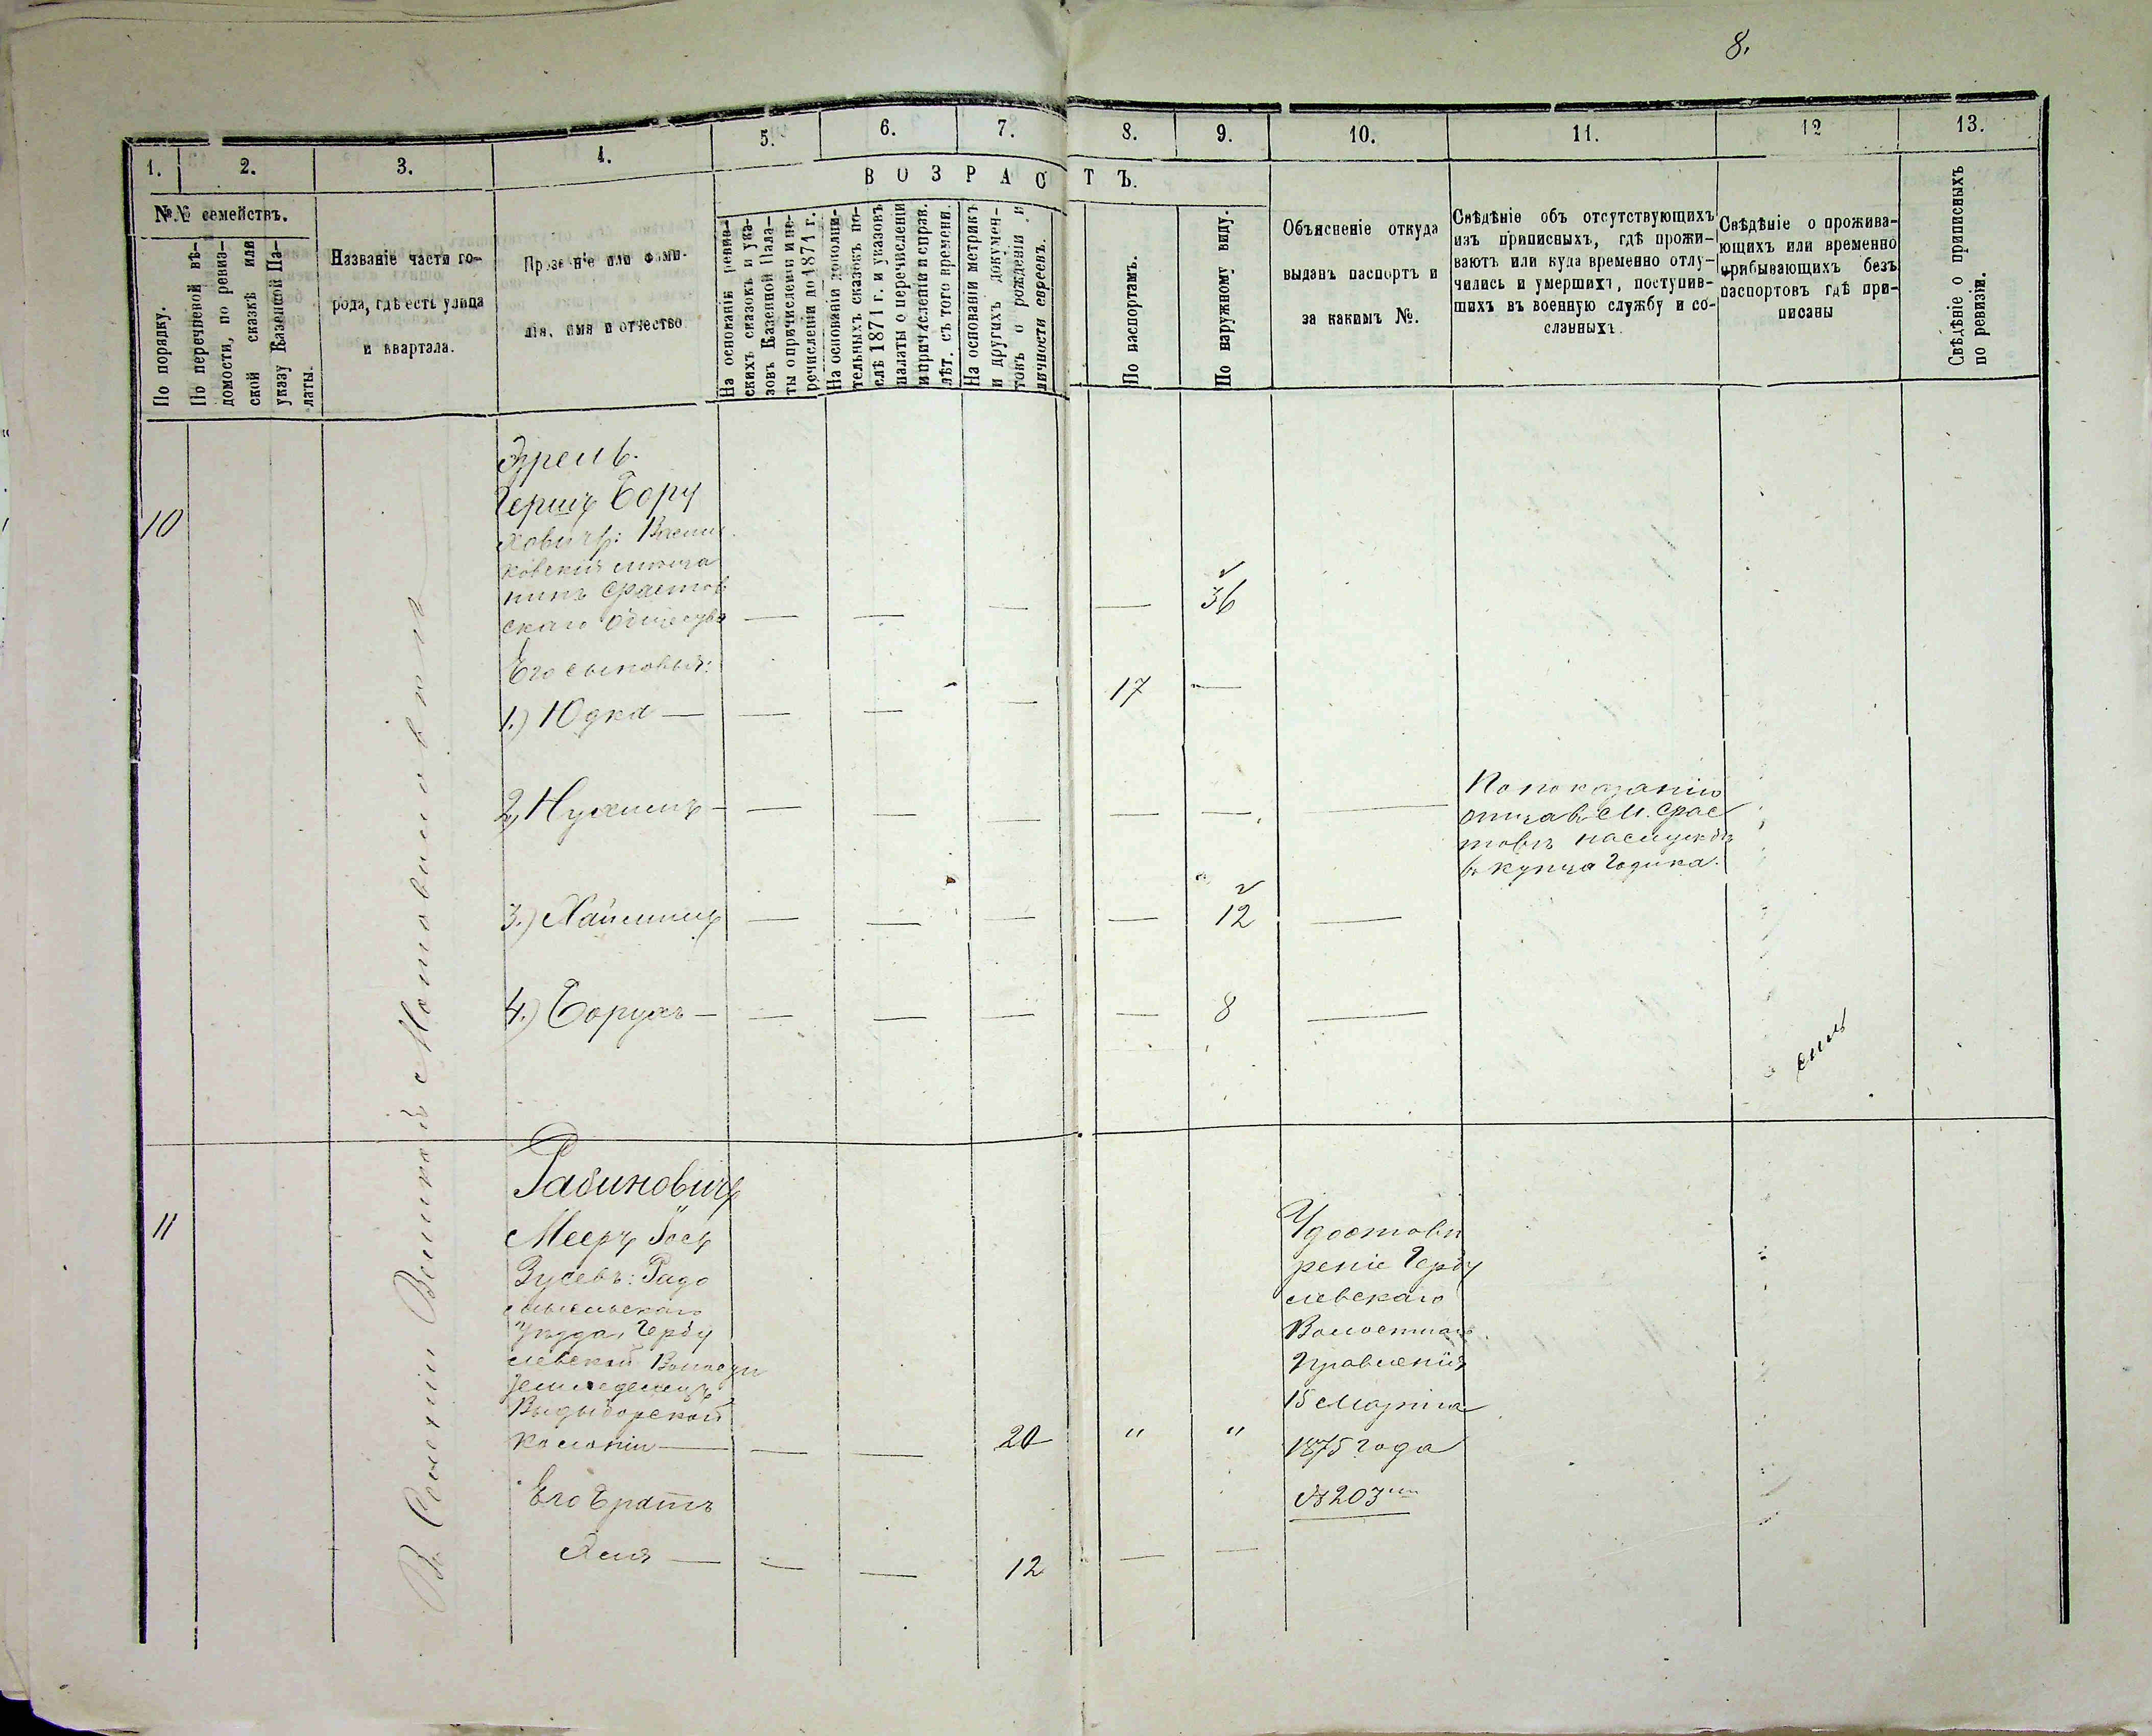 8.
1. 2. 3. 4. 5. 6. 7. 8. 9. 10. 11. 12 13.
ВОЗРАСТЪ.
№№ семействъ.
По порядку.
По перечневой вѣ-
домости, по ревиз-
ской сказкѣ или
указу Казенной Па-
латы.
Названіе части го-
рода, гдѣ есть улица
и квартала.
Прозваніе или фами-
лія, имя и отчество
На основаніи ревиз-
скихъ сказокъ и ука-
зовъ Казенной Пала-
ты о причисленіи и пе-
речисленіи до 1871 г.
На основаніи дополни-
тельныхъ сказокъ по-
слѣ 1871 г. и указовъ
палаты о перечисленіи
и причисленіи и справ.
лѣт. съ того времени.
На основаніи метрикъ
и другихъ докумен-
товъ о рожденіи и
личности евреевъ.
По паспортамъ.
По наружному виду.
Объясненіе откуда
выданъ паспортъ и
за какимъ №.
Свѣдѣніе объ отсутствующихъ
изъ приписныхъ, гдѣ прожи-
ваютъ или куда временно отлу-
чились и умершихъ, поступив-
шихъ въ военную службу и со-
сланныхъ.
Свѣдѣніе о прожива-
ющихъ или временно
прибывающихъ безъ
паспортовъ гдѣ при-
писаны
Свѣдѣніе о приписныхъ
по ревизіи.
Въ Селеніи
10
Гершъ Бору
ховичъ: Васил
ковскій мѣща
нинъ Фастов
скаго Общества — — — — 36
Его сыновья:
1.) Юдка — — — — 17 —
2, Нухимъ — — — — — — —
По показанію
отца въ М. Фас
товѣ на службѣ
въ купца Годика.
3.) Хаймъ — — — — 12 —
4.) Борухъ — — — — — 8 —
11
Рабиновичъ
Мееръ Іосъ
Зусевъ: Радо
мысльскаго
Уѣзда,
левской Волости
земледѣлецъ
Выдыборской
колоніи — — — 20 " "
Его братъ
— — — 12 — —
Удостовѣ
реніе
левскаго
Волостнаго
Правленія
15 Марта
1875 года
№ 203